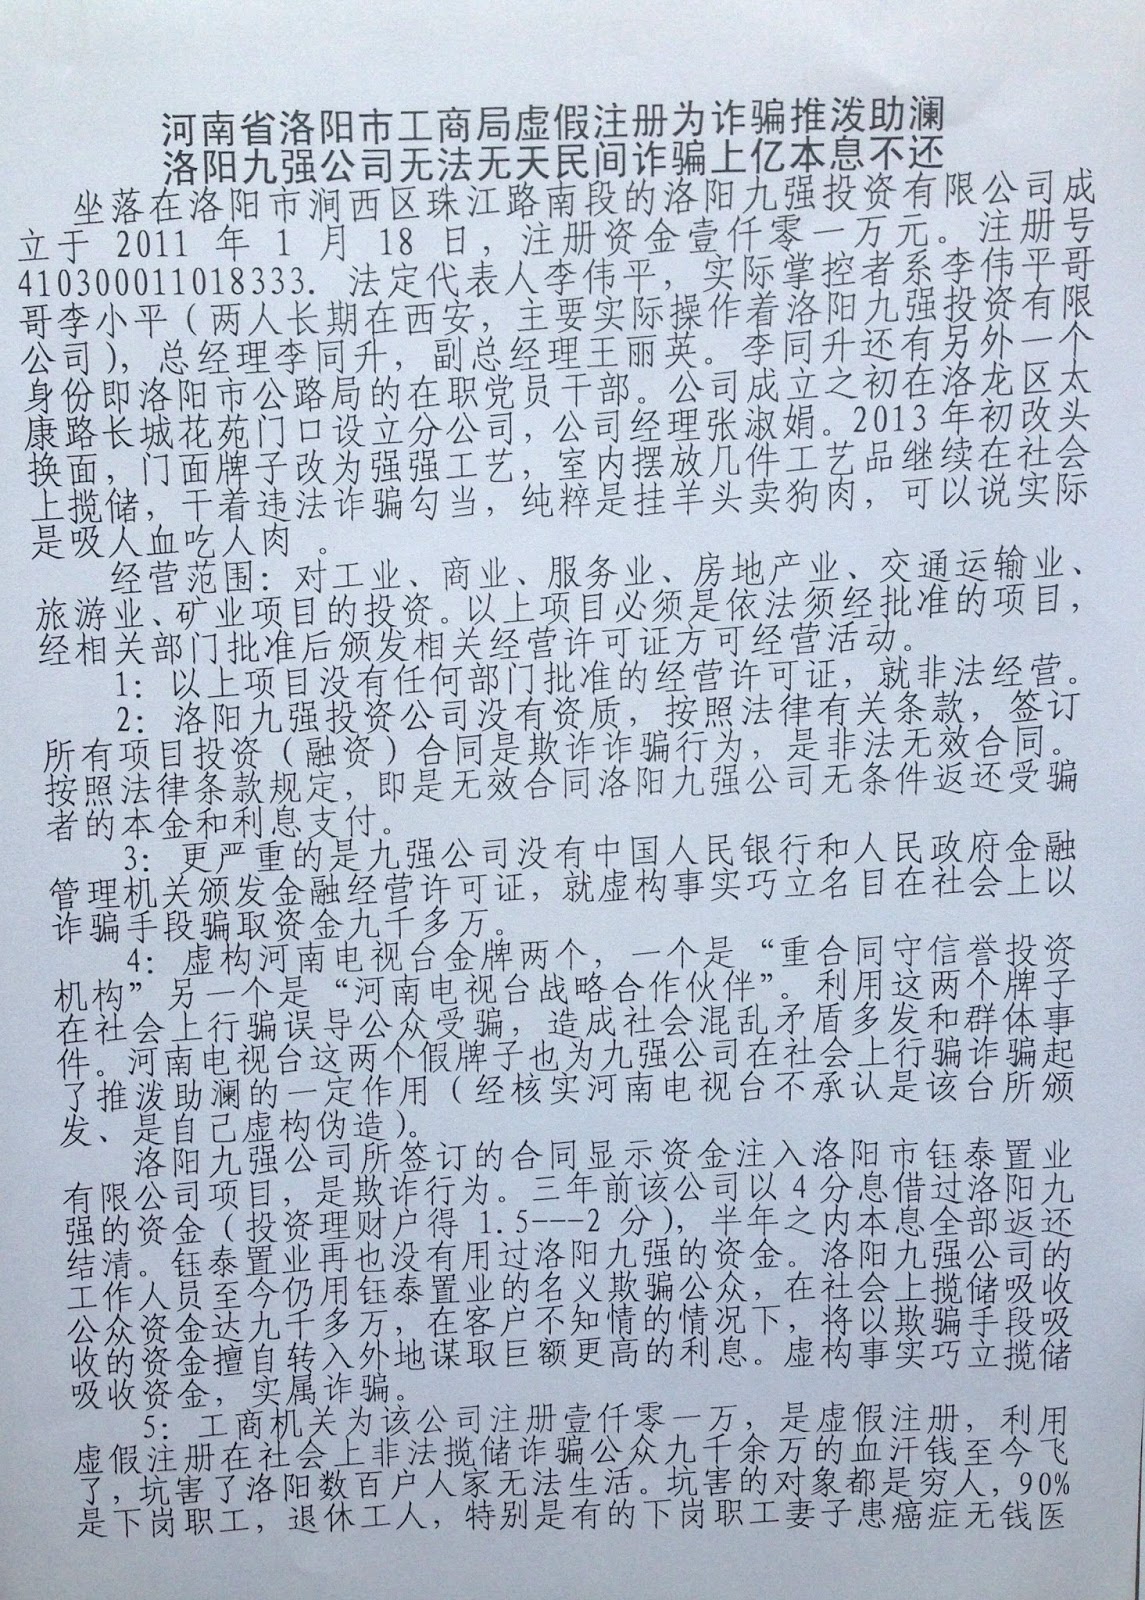 河南省洛阳市工商局虚假注册为诈骗推泼助澜
洛阳九强公司无法无天民间诈骗上亿本息不还
坐落在洛阳市涧西区珠江路南段的洛阳九强投资有限公司成
立于 2011 年 1 月 18 日，注册资金壹仟零一万元。注册号
410300011018333. 法定代表人李伟平，实际掌控者系李伟平哥
哥李小平（两人长期在西安，主要实际操作着洛阳九强投资有限
公司），总经理李同升，副总经理王丽英。李同升还有另外一个
身份即洛阳市公路局的在职党员干部。公司成立之初在洛龙区太
康路长城花苑门口设立分公司，公司经理张淑娟。2013 年初改头
换面，门面牌子改为强强工艺，室内摆放几件工艺品继续在社会
上揽储，干着违法诈骗勾当，纯粹是挂羊头卖狗肉，可以说实际
是吸人血吃人肉 。
经营范围：对工业、商业、服务业、房地产业、交通运输业、
旅游业、矿业项目的投资。以上项目必须是依法须经批准的项目，
经相关部门批准后颁发相关经营许可证方可经营活动。
1：以上项目没有任何部门批准的经营许可证，就非法经营。
2：洛阳九强投资公司没有资质，按照法律有关条款，签订
所有项目投资（融资）合同是欺诈诈骗行为，是非法无效合同。
按照法律条款规定，即是无效合同洛阳九强公司无条件返还受骗
者的本金和利息支付。
3：更严重的是九强公司没有中国人民银行和人民政府金融
管理机关颁发金融经营许可证，就虚构事实巧立名目在社会上以
诈骗手段骗取资金九千多万。
4：虚构河南电视台金牌两个，一个是“重合同守信誉投资
机构”另一个是“河南电视台战略合作伙伴”。利用这两个牌子
在社会上行骗误导公众受骗，造成社会混乱矛盾多发和群体事
件。河南电视台这两个假牌子也为九强公司在社会上行骗诈骗起
了推泼助澜的一定作用（经核实河南电视台不承认是该台所颁
发、是自己虚构伪造）。
洛阳九强公司所签订的合同显示资金注入洛阳市钰泰置业
有限公司项目，是欺诈行为。三年前该公司以 4 分息借过洛阳九
强的资金（投资理财户得 1.5---2 分），半年之内本息全部返还
结清。钰泰置业再也没有用过洛阳九强的资金。洛阳九强公司的
工作人员至今仍用钰泰置业的名义欺骗公众，在社会上揽储吸收
公众资金达九千多万，在客户不知情的情况下，将以欺骗手段吸
收的资金擅自转入外地谋取巨额更高的利息。虚构事实巧立揽储
吸收资金，实属诈骗。
5：工商机关为该公司注册壹仟零一万，是虚假注册，利用
虚假注册在社会上非法揽储诈骗公众九千余万的血汗钱至今飞
了，坑害了洛阳数百户人家无法生活。坑害的对象都是穷人，90%
是下岗职工，退休工人，特别是有的下岗职工妻子患癌症无钱医